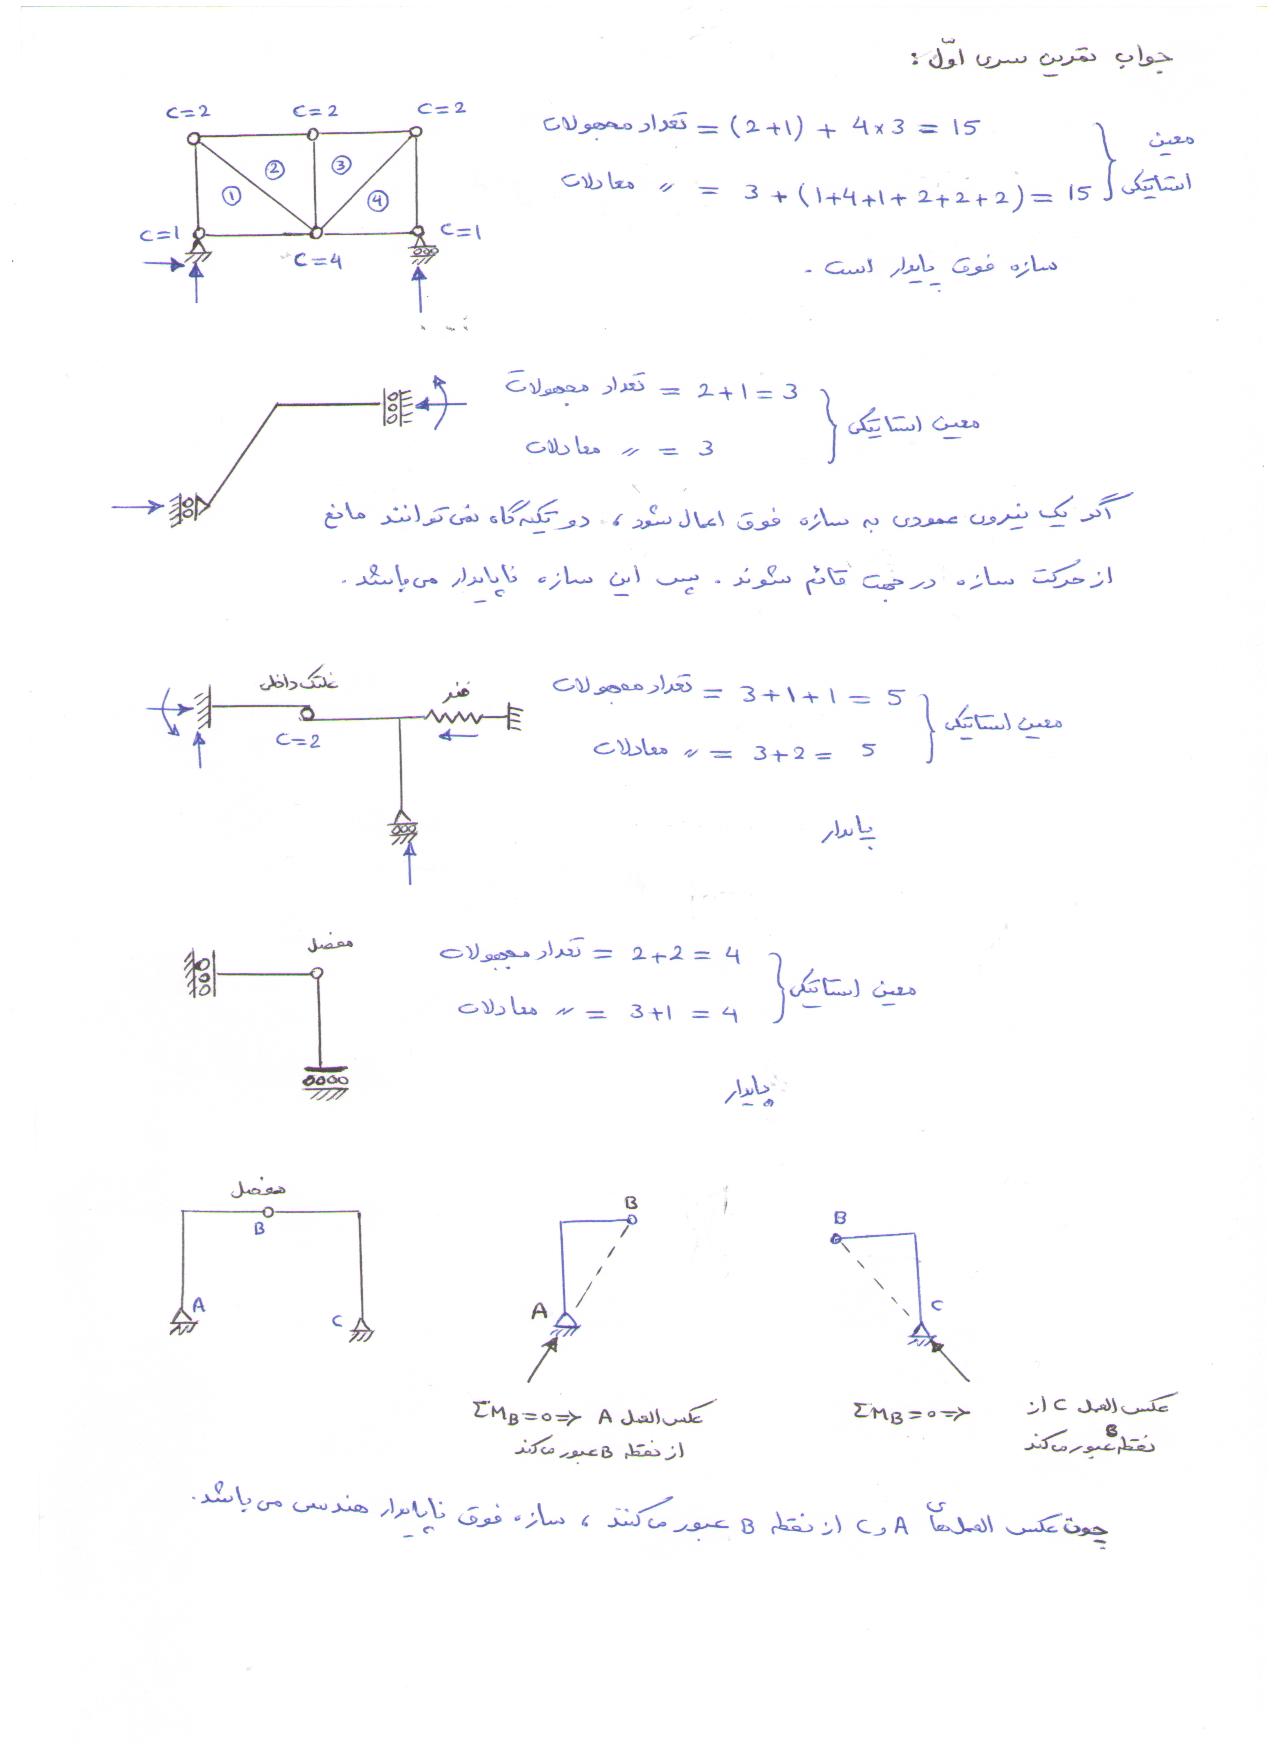 جواب تمرین سری اوّل :
C=2 C=2 C=2
① ② ③ ④
C=1 C=4 C=1
تعداد مجهولات = (2+1) + 4×3 = 15
〃 معادلات = 3 + (1+4+1+2+2+2) = 15
معین استاتیکی
سازه فوق پایدار است .
تعداد مجهولات = 2+1 = 3
〃 معادلات = 3
معین استاتیکی
اگر یک نیروی عمودی به سازه فوق اعمال شود ، دو تکیه گاه نمی توانند مانع
از حرکت سازه در جهت قائم شوند . پس این سازه ناپایدار می باشد .
غلتک داخلی
فنر
C=2
تعداد مجهولات = 3+1+1 = 5
〃 معادلات = 3+2 = 5
معین استاتیکی
پایدار
مفصل
تعداد مجهولات = 2+2 = 4
〃 معادلات = 3+1 = 4
معین استاتیکی
پایدار
مفصل
B
A
C
B
A
ΣM_B=0 ⇒ عکس العمل A
از نقطه B عبور میکند
B
C
ΣM_B=0 ⇒ عکس العمل C از
نقطه B عبور میکند
چون عکس العمل های A و C از نقطه B عبور می کنند ، سازه فوق ناپایدار هندسی می باشد .